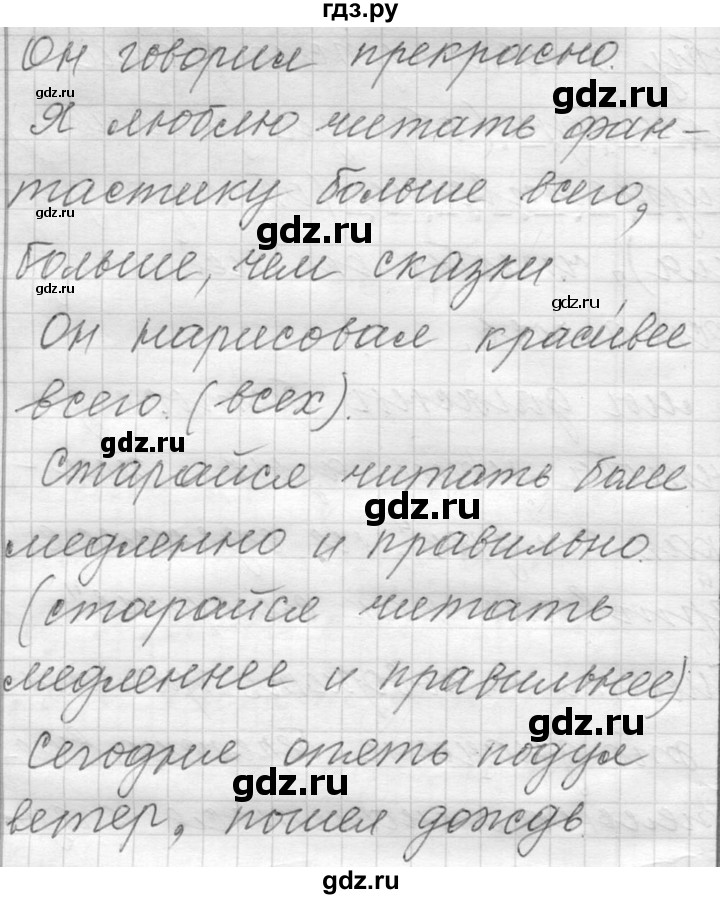 гдз.ру
Он говорил прекрасно.
gdz.ru
gdz.ru
Я люблю читать фан-
тастику больше всего,
gdz.ru
gdz.ru
больше, чем сказки.
gdz.ru
gdz.ru
Он нарисовал краси́вее
всего. (всех).
gdz.ru
Старайся читать более
gdz.ru
медленно и правильно.
(старайся читать
медленнее и правильнее)
gdz.ru
Сегодня опять подул
gdz.ru
ветер, пошел дождь
gdz.ru
gdz.ru